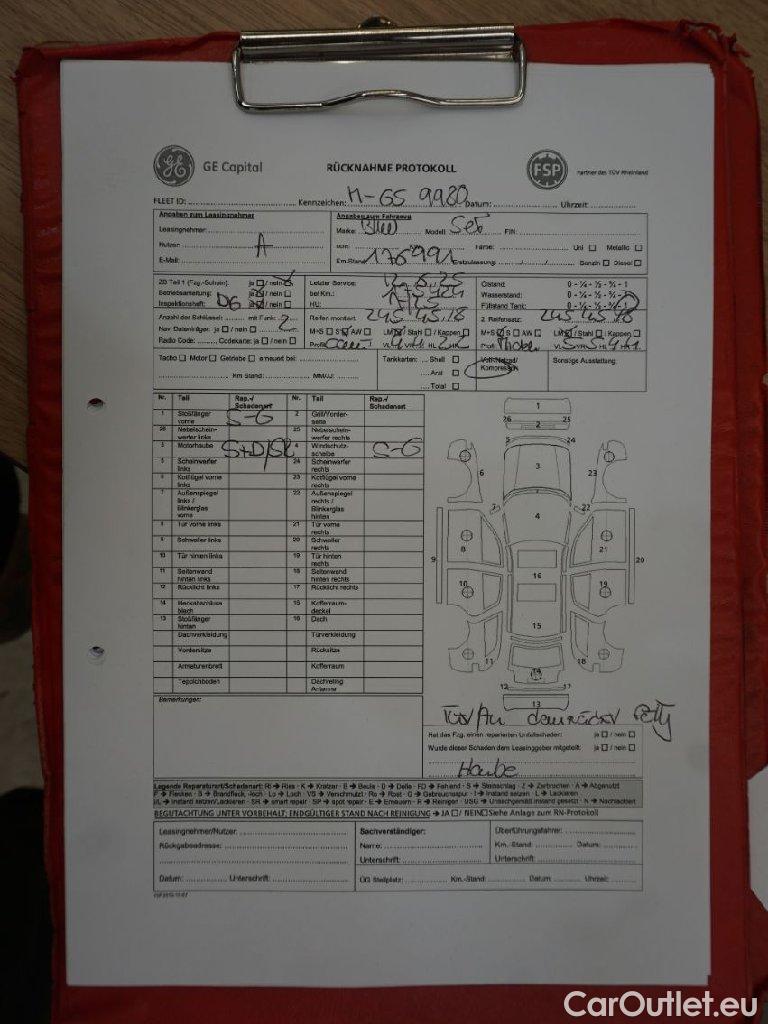 GE Capital
RÜCKNAHME PROTOKOLL
FSP
Partner des TÜV Rheinland
FLEET ID: Kennzeichen: M-GS 9980 Datum: Uhrzeit:
Angaben zum Leasingnehmer
Leasingnehmer:
Nutzer: A
E-Mail:
Angaben zum Fahrzeug
Marke: Modell: FIN:
Farbe: Uni Metallic
Km.Stand 176991 Erstzulassung Benzin Diesel
ZB Teil 1 (Fzg.-Schein): ja / nein
Betriebsanleitung: ja / nein
Inspektionsheft: ja / nein
Letzter Service:
bei Km.:
HU:
Ölstand: 0 - ¼ - ½ - ¾ - 1
Wasserstand: 0 - ¼ - ½ - ¾ - 1
Füllstand Tank: 0 - ¼ - ½ - ¾ - 1
Anzahl der Schlüssel: mit Funk: 2
Nav. Datenträger: ja / nein
Radio Code: Codekarte: ja / nein
Reifen montiert 245 45 18
M+S S AW LM / Stahl / Kappen
2. Reifensatz: 245 45 18
M+S S AW LM / Stahl / Kappen
Tacho Motor Getriebe erneuert bei:
Km Stand: MM/JJ:
Tankkarten: Shell
Aral
Total
Sonstige Ausstattung:
Nr. Teil Rep.-/ Schadenart Nr. Teil Rep.-/ Schadenart
1 Stoßfänger vorne S-G 2 Grill/Vorderseite
26 Nebelscheinwerfer links 25 Nebelscheinwerfer rechts
3 Motorhaube 4 Windschutzscheibe S-G
5 Scheinwerfer links 24 Scheinwerfer rechts
6 Kotflügel vorne links 23 Kotflügel vorne rechts
7 Außenspiegel links / Blinkerglas vorne 22 Außenspiegel rechts / Blinkerglas hinten
8 Tür vorne links 21 Tür vorne rechts
9 Schweller links 20 Schweller rechts
10 Tür hinten links 19 Tür hinten rechts
11 Seitenwand hinten links 18 Seitenwand hinten rechts
12 Rücklicht links 17 Rücklicht rechts
14 Heckabschlussblech 15 Kofferraumdeckel
13 Stoßfänger hinten 16 Dach
Dachverkleidung Türverkleidung
Vordersitze Rücksitze
Armaturenbrett Kofferraum
Teppichboden Dachreling Antenne
1
26 25
2
5 24
3
6 23
7 22
4
8 21
9 20
16
10 19
15
11 18
14
12 17
13
Bemerkungen:
Hat das Fzg. einen reparierten Unfallschaden: ja / nein
Wurde dieser Schaden dem Leasinggeber mitgeteilt: ja / nein
Haube
Legende Reparaturart/Schadenart: RI → Riss - K → Kratzer - B → Beule - D → Delle - FD → Fehlend - S → Steinschlag - Z → Zerbrochen - A → Abgenutzt
F → Flecken - B → Brandfleck, -loch - Lo → Loch - VS → Verschmutzt - Ro → Rost - G → Gebrauchsspur - I → Instand setzen - L → Lackieren
I/L → Instand setzen/Lackieren - SR → smart repair - SP → spot repair - E → Erneuern - R → Reinigen - USG → Unsachgemäß instand gesetzt - N → Nachlackiert
BEGUTACHTUNG UNTER VORBEHALT: ENDGÜLTIGER STAND NACH REINIGUNG → JA / NEIN Siehe Anlage zum RN-Protokoll
Leasingnehmer/Nutzer:
Rückgabeadresse:
Datum: Unterschrift:
Sachverständiger:
Name:
Unterschrift:
Überführungsfahrer:
Km.-Stand: Datum:
Unterschrift:
ÖG Stellplatz: Km.-Stand: Datum: Uhrzeit:
CarOutlet.eu